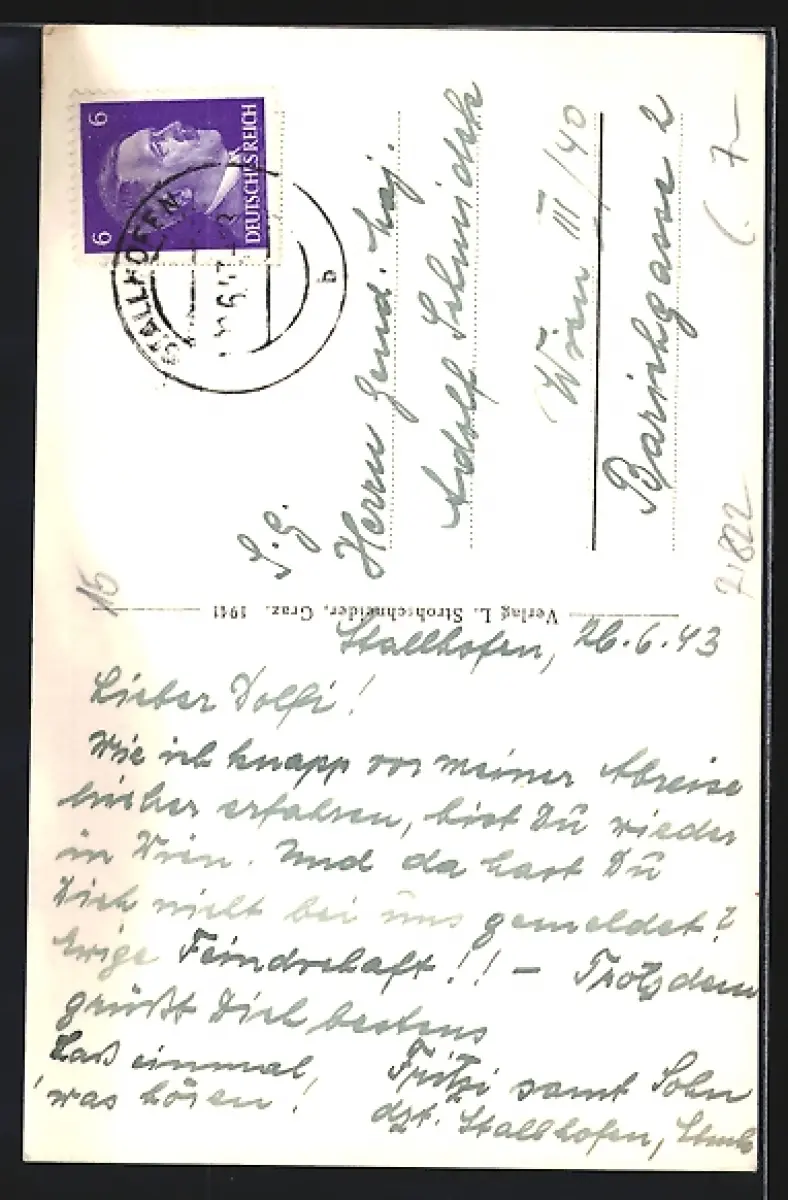 6 6
DEUTSCHES REICH
STALLHOFEN
b
S. G.
Herrn Gend. Maj.
Adolf Schmidek
Wien III/40
Barichgasse 2
Verlag L. Strohschneider, Graz. 1941
15
71822
Stallhofen, 26.6.43
Lieber Dolfi!
Wie ich knapp vor meiner Abreise
hieher erfahren, bist Du wieder
in Wien. Und da hast Du
Dich nicht bei uns gemeldet?
Ewige Feindschaft!! – Trotzdem
grüßt Dich bestens
Fritzi samt Sohn
dzt. Stallhofen, Stmk
Laß einmal
was hören!